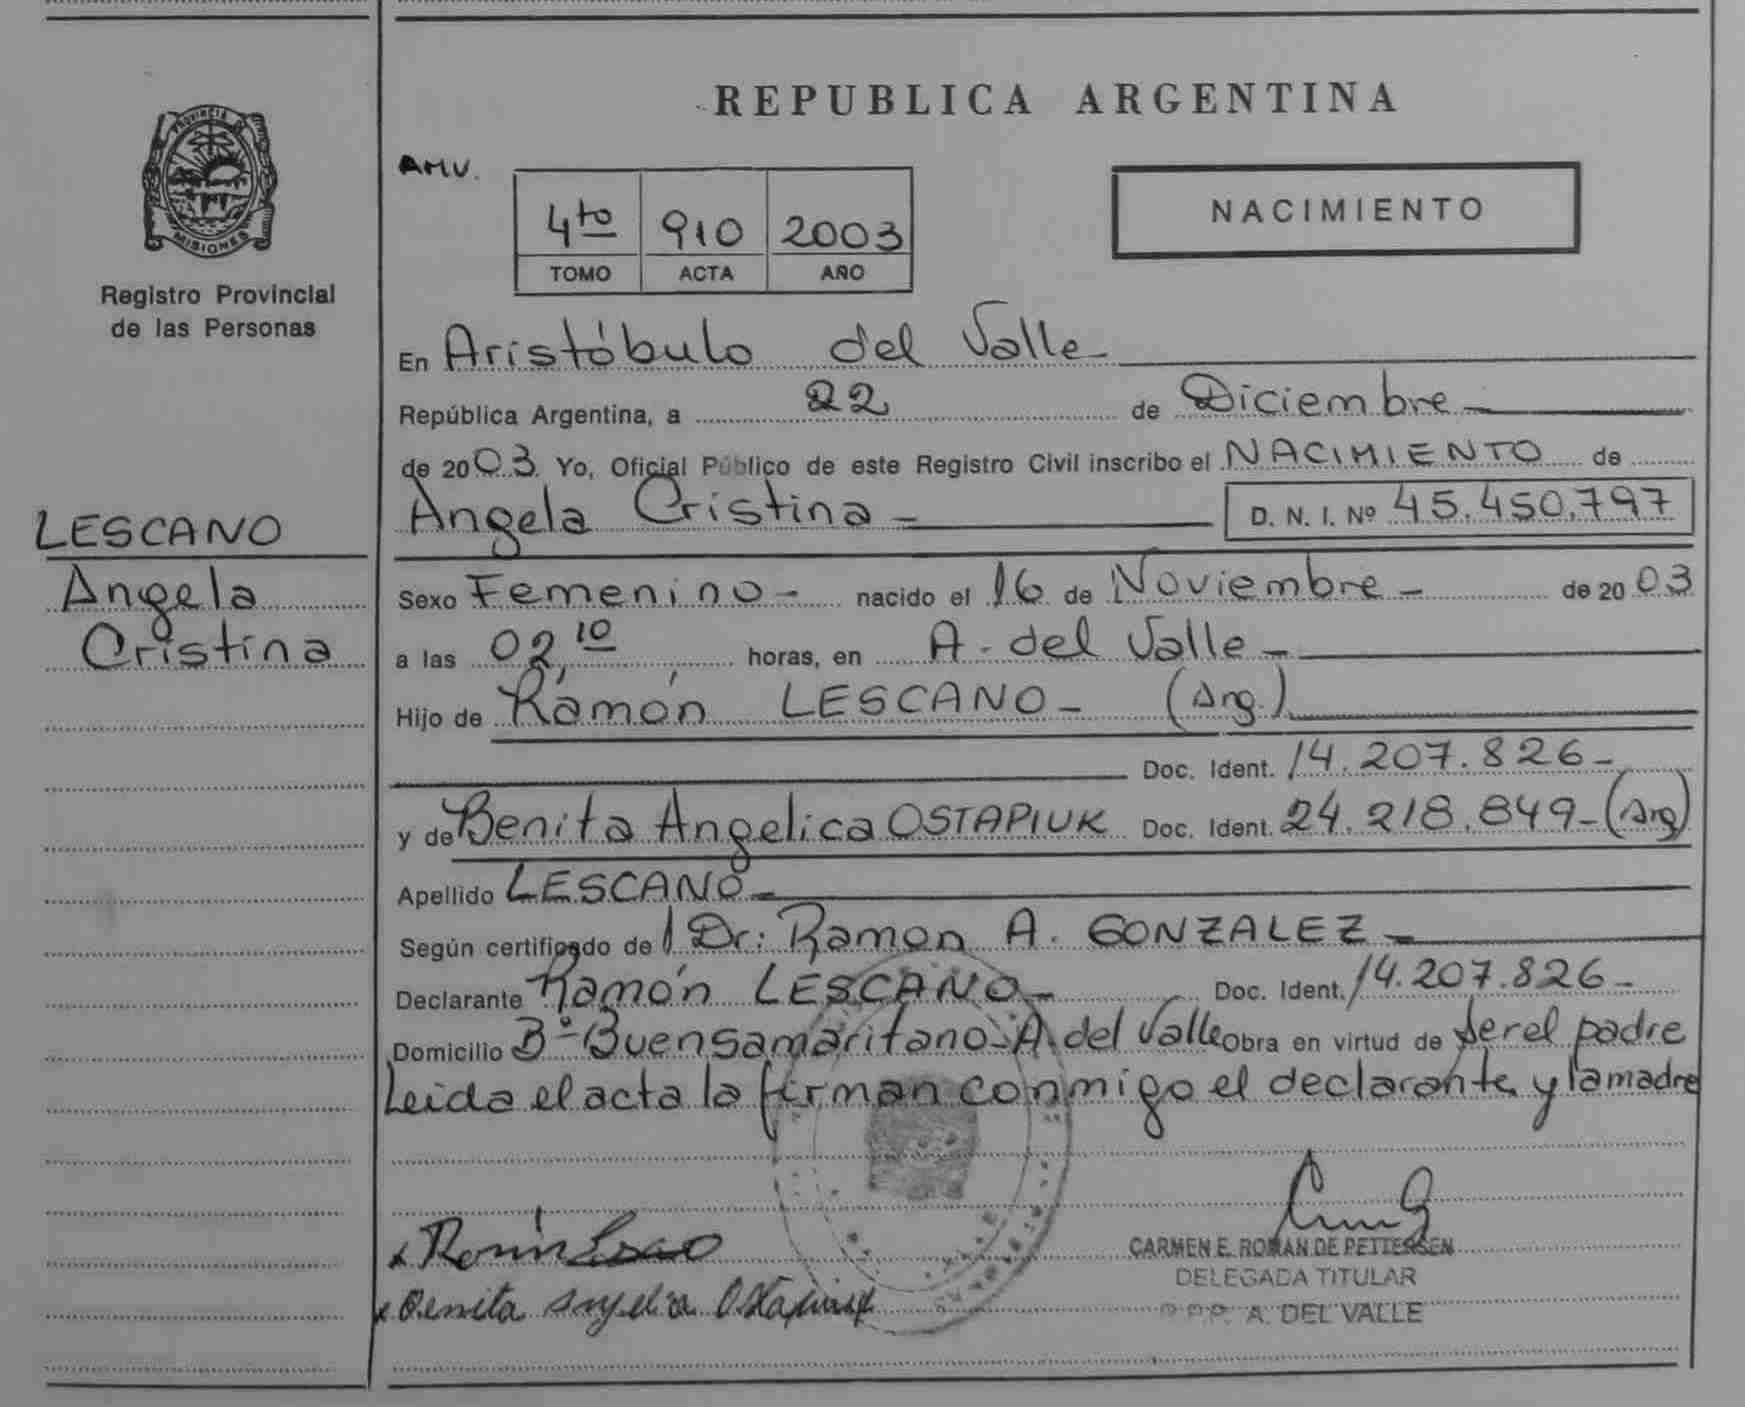 REPUBLICA ARGENTINA
PROVINCIA DE
MISIONES
Registro Provincial
de las Personas
AMV.
4to 910 2003
TOMO ACTA AÑO
NACIMIENTO
En Aristóbulo del Valle
República Argentina, a 22 de Diciembre
de 2003. Yo, Oficial Público de este Registro Civil inscribo el NACIMIENTO de
Angela Cristina D. N. I. Nº 45.450.797
LESCANO
Angela
Cristina
Sexo Femenino nacido el 16 de Noviembre de 2003
a las 02,10 horas, en A. del Valle
Hijo de Ramón LESCANO (Arg.)
Doc. Ident. 14.207.826
y de Benita Angelica OSTAPIUK Doc. Ident. 24.218.849 (Arg)
Apellido LESCANO
Según certificado de Dr: Ramon A. GONZALEZ
Declarante Ramón LESCANO Doc. Ident. 14.207.826
Domicilio Bº Buensamaritano A. del Valle Obra en virtud de ser el padre
Leida el acta la firman conmigo el declarante y la madre
CARMEN E. ROMAN DE PETTERSEN
DELEGADA TITULAR
A. DEL VALLE
Benita Angelica Ostapiuk